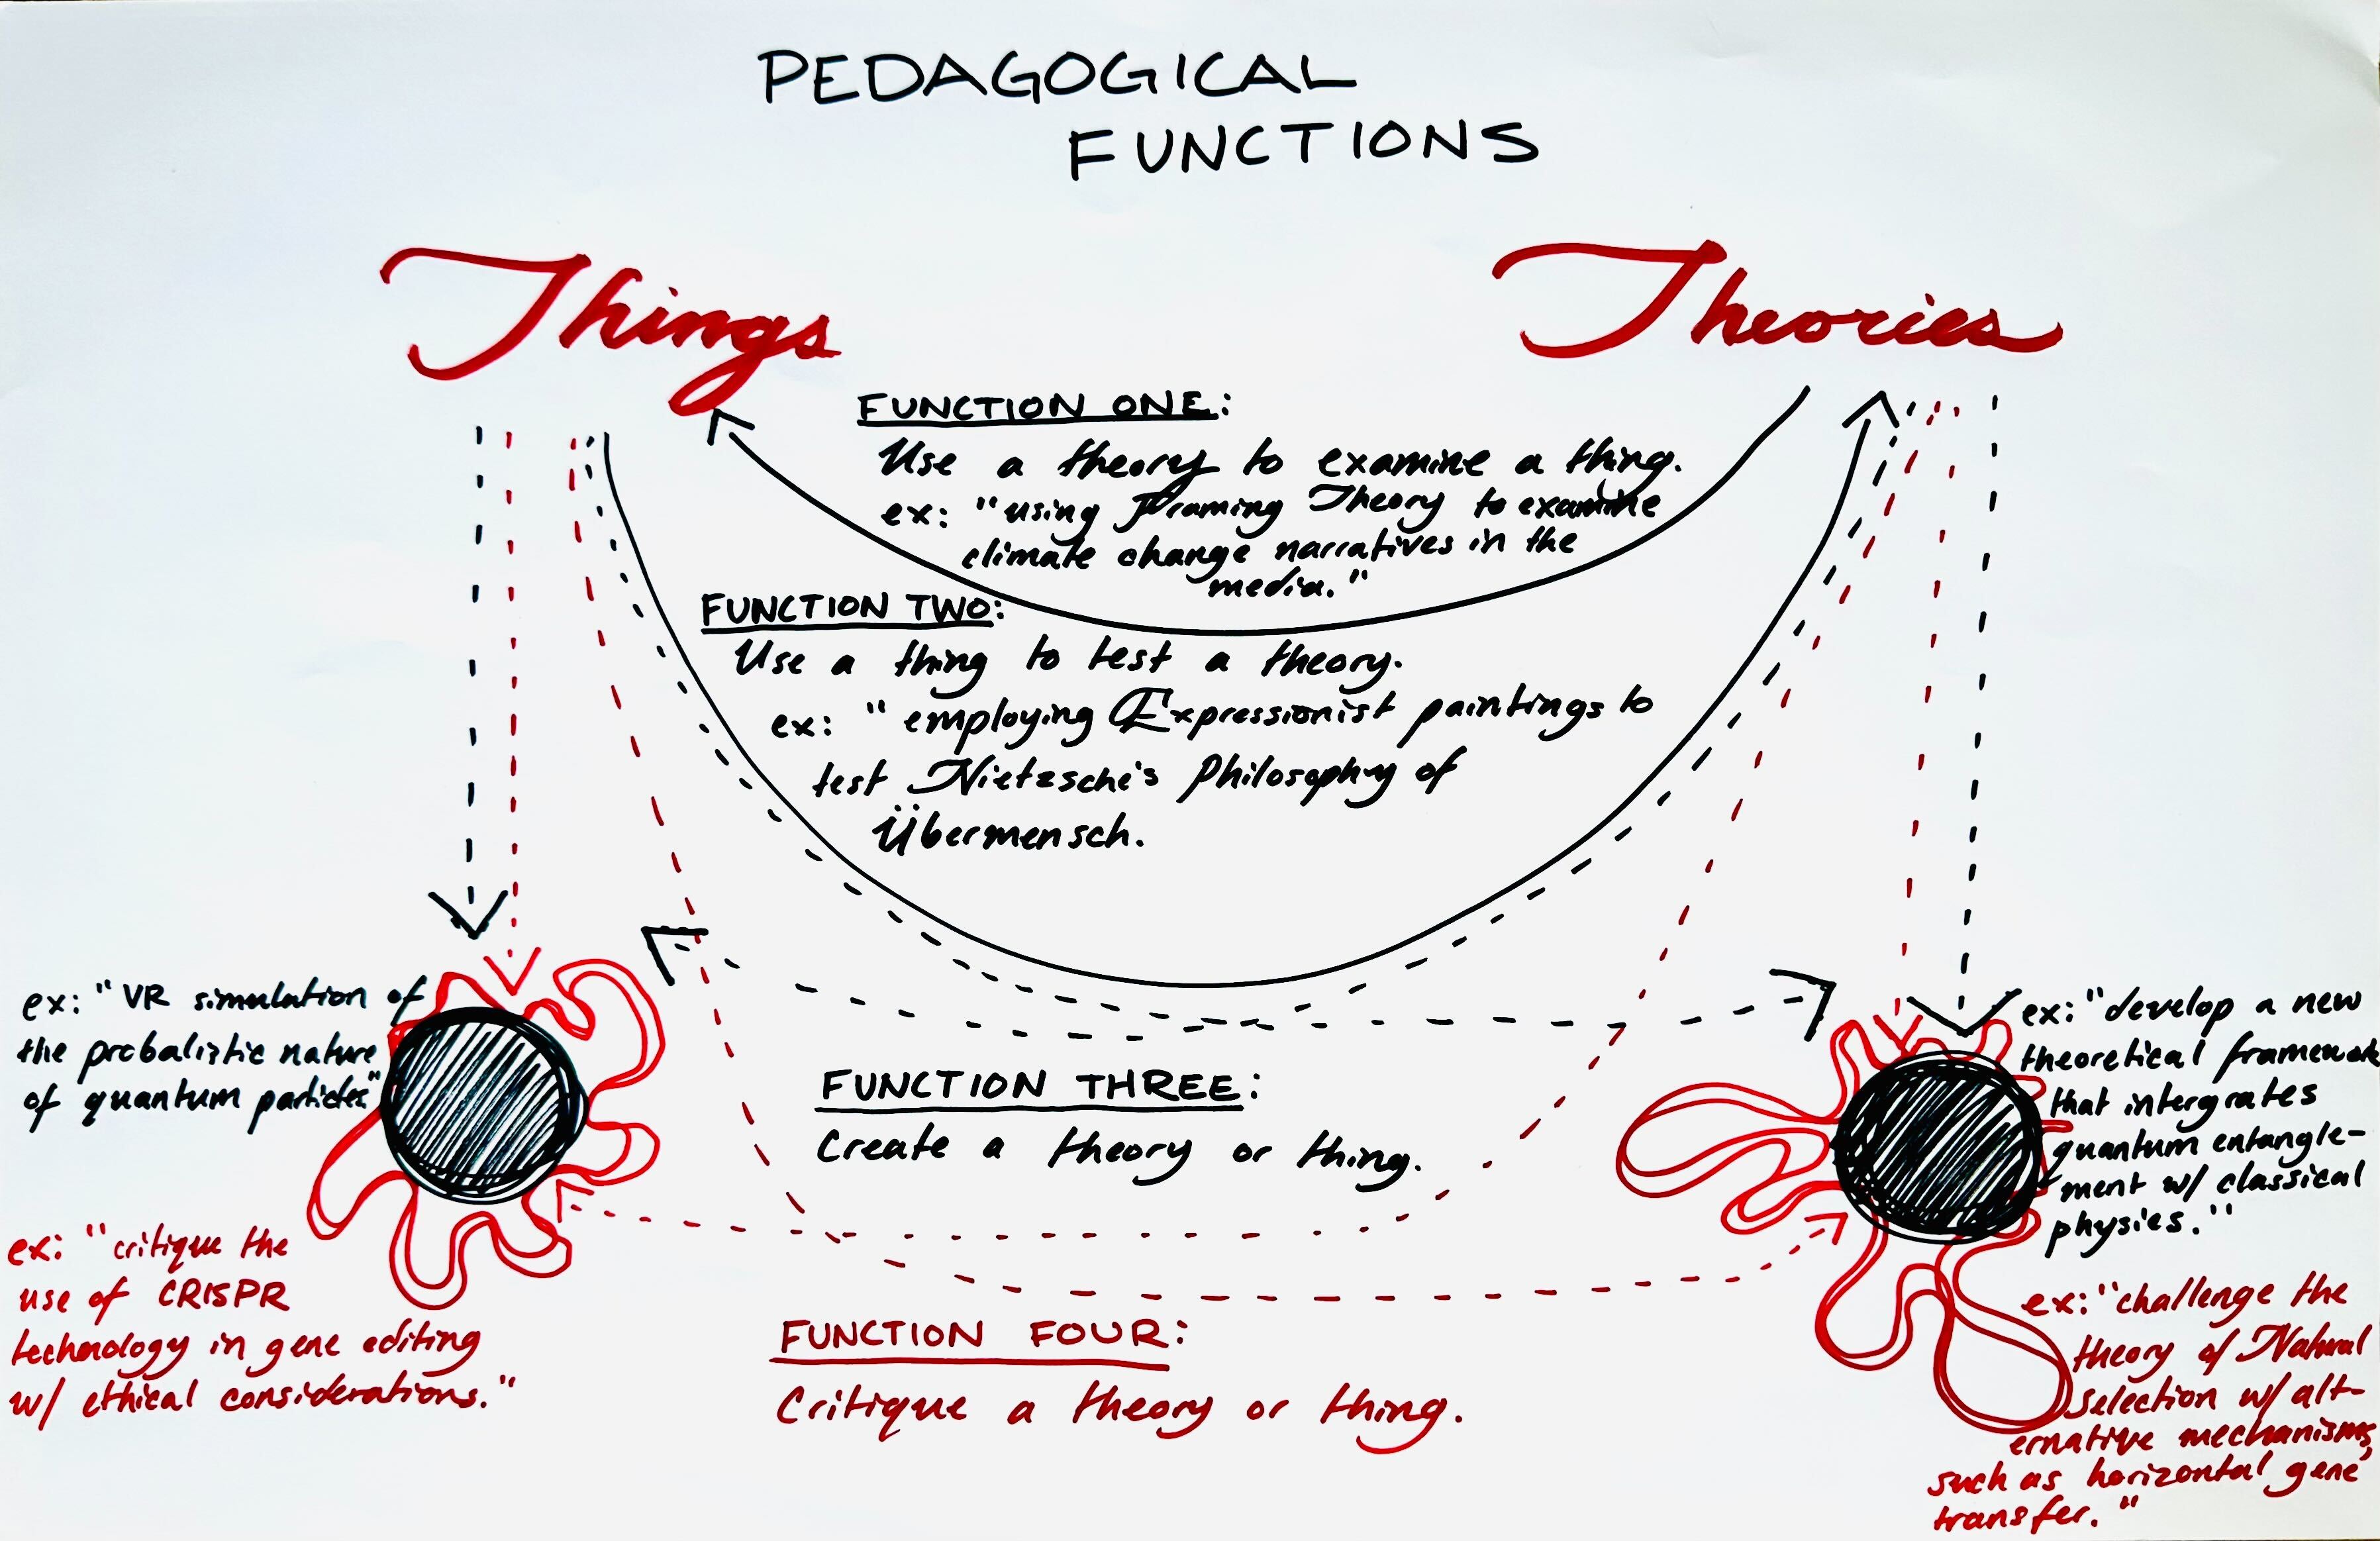 PEDAGOGICAL
FUNCTIONS
Things
Theories
FUNCTION ONE:
Use a theory to examine a thing.
ex: "using Framing Theory to examine
climate change narratives in the
media."
FUNCTION TWO:
Use a thing to test a theory.
ex: "employing Expressionist paintings to
test Nietzsche's Philosophy of
Übermensch.
FUNCTION THREE:
Create a theory or thing.
ex: "VR simulation of
the probalistic nature
of quantum particles"
ex: "develop a new
theoretical framework
that intergrates
quantum entangle-
ment w/ classical
physics."
FUNCTION FOUR:
Critique a theory or thing.
ex: "critique the
use of CRISPR
technology in gene editing
w/ ethical considerations."
ex: "challenge the
theory of Natural
Selection w/ alt-
ernative mechanisms,
such as horizontal gene
transfer."